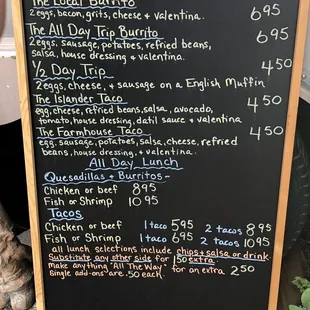 The Local Burrito 6.95
2 eggs, bacon, grits, cheese + valentina.
The All Day Trip Burrito 6.95
2 eggs, sausage, potatoes, refried beans,
salsa, house dressing + valentina.
1/2 Day Trip 4.50
2 eggs, cheese, + sausage on a English Muffin
The Islander Taco 4.50
egg, cheese, refried beans, salsa, avocado,
tomato, house dressing, datil sauce + valentina
The Farmhouse Taco 4.50
egg, sausage, potatoes, salsa, cheese, refried
beans, house dressing, + valentina.
All Day Lunch
Quesadillas + Burritos -
Chicken or beef 8.95
Fish or Shrimp 10.95
Tacos
Chicken or beef 1 taco 5.95 2 tacos 8.95
Fish or Shrimp 1 taco 6.95 2 tacos 10.95
all lunch selections include chips + salsa or drink.
Substitute any other side for 1.50 extra.
Make anything "All The Way" for an extra 2.50
Single add-ons are .50 each.